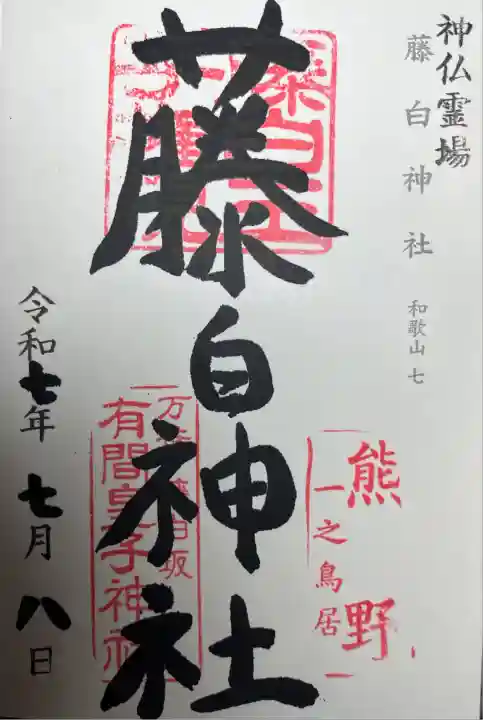 神仏霊場
藤白神社
和歌山 七
藤白神社
熊野
一之鳥居
有間皇子神社
令和七年 七月 八日